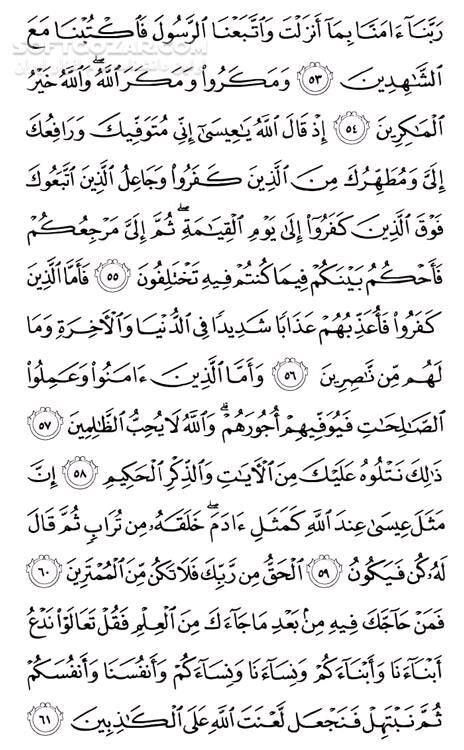 رَبَّنَآ ءَامَنَّا بِمَآ أَنزَلْتَ وَٱتَّبَعْنَا ٱلرَّسُولَ فَٱكْتُبْنَا مَعَ
ٱلشَّـٰهِدِينَ ٥٣ وَمَكَرُوا۟ وَمَكَرَ ٱللَّهُ ۖ وَٱللَّهُ خَيْرُ
ٱلْمَـٰكِرِينَ ٥٤ إِذْ قَالَ ٱللَّهُ يَـٰعِيسَىٰٓ إِنِّى مُتَوَفِّيكَ وَرَافِعُكَ
إِلَىَّ وَمُطَهِّرُكَ مِنَ ٱلَّذِينَ كَفَرُوا۟ وَجَاعِلُ ٱلَّذِينَ ٱتَّبَعُوكَ
فَوْقَ ٱلَّذِينَ كَفَرُوٓا۟ إِلَىٰ يَوْمِ ٱلْقِيَـٰمَةِ ۖ ثُمَّ إِلَىَّ مَرْجِعُكُمْ
فَأَحْكُمُ بَيْنَكُمْ فِيمَا كُنتُمْ فِيهِ تَخْتَلِفُونَ ٥٥ فَأَمَّا ٱلَّذِينَ
كَفَرُوا۟ فَأُعَذِّبُهُمْ عَذَابًا شَدِيدًا فِى ٱلدُّنْيَا وَٱلْـَٔاخِرَةِ وَمَا
لَهُم مِّن نَّـٰصِرِينَ ٥٦ وَأَمَّا ٱلَّذِينَ ءَامَنُوا۟ وَعَمِلُوا۟
ٱلصَّـٰلِحَـٰتِ فَيُوَفِّيهِمْ أُجُورَهُمْ ۗ وَٱللَّهُ لَا يُحِبُّ ٱلظَّـٰلِمِينَ ٥٧
ذَٰلِكَ نَتْلُوهُ عَلَيْكَ مِنَ ٱلْـَٔايَـٰتِ وَٱلذِّكْرِ ٱلْحَكِيمِ ٥٨ إِنَّ
مَثَلَ عِيسَىٰ عِندَ ٱللَّهِ كَمَثَلِ ءَادَمَ ۖ خَلَقَهُۥ مِن تُرَابٍ ثُمَّ قَالَ
لَهُۥ كُن فَيَكُونُ ٥٩ ٱلْحَقُّ مِن رَّبِّكَ فَلَا تَكُن مِّنَ ٱلْمُمْتَرِينَ ٦٠
فَمَنْ حَآجَّكَ فِيهِ مِنۢ بَعْدِ مَا جَآءَكَ مِنَ ٱلْعِلْمِ فَقُلْ تَعَالَوْا۟ نَدْعُ
أَبْنَآءَنَا وَأَبْنَآءَكُمْ وَنِسَآءَنَا وَنِسَآءَكُمْ وَأَنفُسَنَا وَأَنفُسَكُمْ
ثُمَّ نَبْتَهِلْ فَنَجْعَل لَّعْنَتَ ٱللَّهِ عَلَى ٱلْكَـٰذِبِينَ ٦١
SOFTGOZAR.COM